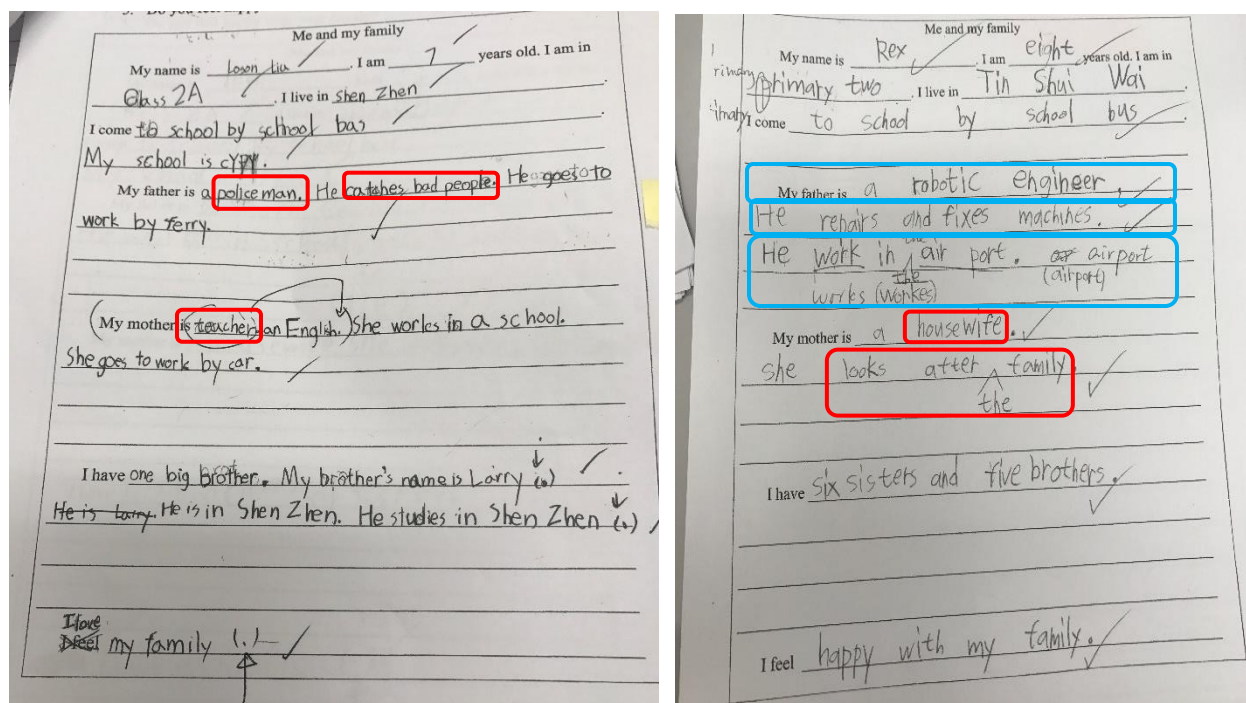 Me and my family
My name is Loson Liu . I am 7 years old. I am in
Class 2A . I live in Shen Zhen .
I come to school by school bas
My school is CYPY.
My father is a police man. He catches bad people. He goes to
work by ferry.
(My mother is teacher an English.) She works in a school.
She goes to work by car.
I have one big brother. My brother's name is Larry (.) .
He is Larry. He is in Shen Zhen. He studies in Shen Zhen (.)
I love
I feel my family (.)
Me and my family
My name is Rex . I am eight years old. I am in
primary two . I live in Tin Shui Wai .
I come to school by school bus
My father is a robotic engineer.
He repairs and fixes machines.
He work in the air port. airport
works (workes) (airport)
My mother is a housewife.
she looks after family.
the
I have six sisters and five brothers.
I feel happy with my family.